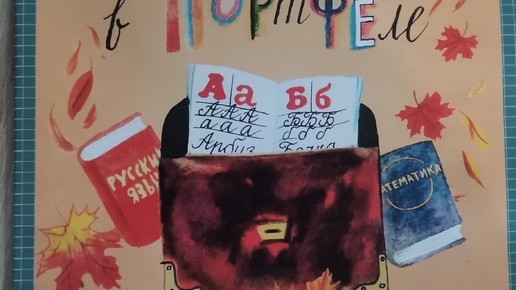 в ПОРТФЕле
Аа Бб
А А А Б Б Б
а а а б б б
Арбуз
РУССКИЙ
ЯЗЫК
МАТЕМАТИКА